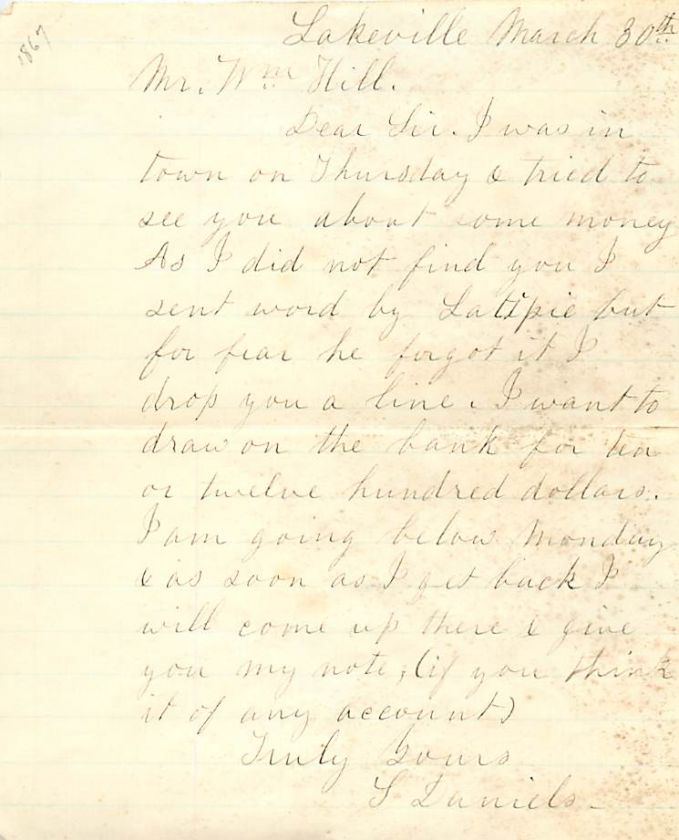 1867
Lakeville March 30th
Mr. Wm Hill.
Dear Sir. I was in
town on Thursday & tried to
see you about some money
As I did not find you I
sent word by but
for fear he forgot it I
drop you a line. I want to
draw on the bank for ten
or twelve hundred dollars.
I am going below Monday
& as soon as I get back I
will come up there & give
you my note, (if you think
it of any account)
Truly Yours
S Daniels